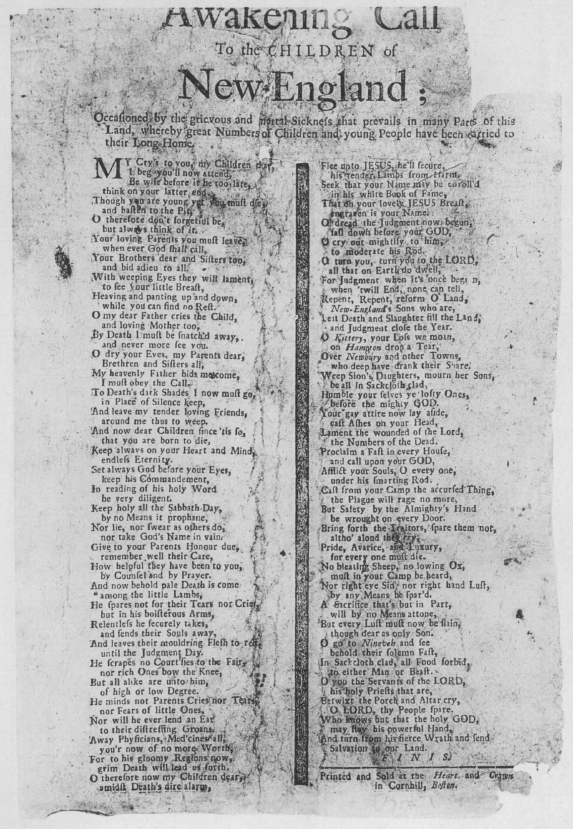 Awakening Call
To the CHILDREN of
New-England;
Occasioned by the grievous and mortal Sickness that prevails in many Parts of this
Land, whereby great Numbers of Children and young People have been carried to
their Long-Home.
MY Cry's to you, my Children dear,
I beg you'll now attend,
Be wise before it be too late,
think on your latter end.
Though you are young yet you must die,
and hasten to the Pit,
O therefore don't forgetful be,
but always think of it.
Your loving Parents you must leave,
when ever God shall call,
Your Brothers dear and Sisters too,
and bid adieu to all.
With weeping Eyes they will lament,
to see your little Breast,
Heaving and panting up and down,
while you can find no Rest.
O my dear Father cries the Child,
and loving Mother too,
By Death I must be snatch'd away,
and never more see you.
O dry your Eyes, my Parents dear,
Brethren and Sisters all,
My heavenly Father bids me come,
I must obey the Call.
To Death's dark Shades I now must go,
in Place of Silence keep,
And leave my tender loving Friends,
around me thus to weep.
And now dear Children since 'tis so,
that you are born to die,
Keep always on your Heart and Mind,
endless Eternity.
Set always God before your Eyes,
keep his Commandement,
In reading of his holy Word
be very diligent.
Keep holy all the Sabbath-Day,
by no Means it prophane,
Nor lie, nor swear as others do,
nor take God's Name in vain.
Give to your Parents Honour due,
remember well their Care,
How helpful they have been to you,
by Counsel and by Prayer.
And now behold pale Death is come
among the little Lambs,
He spares not for their Tears nor Cries,
but in his boisterous Arms,
Relentless he securely takes,
and sends their Souls away,
And leaves their mouldring Flesh to rot,
until the Judgment Day.
He scrapes no Court'sies to the Fair,
nor rich Ones bow the Knee,
But all alike are unto him,
of high or low Degree.
He minds not Parents Cries nor Tears,
nor Fears of little Ones,
Nor will he ever lend an Ear
to their distressing Groans.
Away Physicians, Med'cines all,
you'r now of no more Worth,
For to his gloomy Regions now,
grim Death will lead us forth.
O therefore now my Children dear,
amidst Death's dire alarm,
Flee unto JESUS, he'll secure,
his tender Lambs from Harm.
Seek that your Name may be enroll'd
in his white Book of Fame,
That on your lovely JESUS Breast,
engraven is your Name.
O dread the Judgment now begun,
fall down before your GOD,
O cry out mightily to him,
to moderate his Rod.
O turn you, turn you to the LORD,
all that on Earth do dwell,
For Judgment when it's once begun,
when 'twill End, none can tell,
Repent, Repent, reform O Land,
New-England's Sons who are,
Lest Death and Slaughter fill the Land,
and Judgment close the Year.
O Kittery, your Loss we moan,
on Hampton drop a Tear,
Over Newbury and other Towns,
who deep have drank their Share.
Weep Sion's Daughters, mourn her Sons,
be all in Sackcloth clad,
Humble your selves ye lofty Ones,
before the mighty GOD.
Your gay attire now lay aside,
cast Ashes on your Head,
Lament the wounded of the Lord,
the Numbers of the Dead.
Proclaim a Fast in every House,
and call upon your GOD,
Afflict your Souls, O every one,
under his smarting Rod.
Cast from your Camp the accursed Thing,
the Plague will rage no more,
But Safety by the Almighty's Hand
be wrought on every Door.
Bring forth the Traitors, spare them not,
altho' aloud they cry,
Pride, Avarice, and Luxury,
for every one must die.
No bleating Sheep, no lowing Ox,
must in your Camp be heard,
Nor right eye Sin, nor right hand Lust,
by any Means be spar'd.
A Sacrifice that's but in Part,
will by no Means attone,
But every Lust must now be slain,
though dear as only Son.
O go to Nineveh and see
behold their solemn Fast,
In Sackcloth clad, all Food forbid,
to either Man or Beast.
O you the Servants of the LORD,
his holy Priests that are,
Betwixt the Porch and Altar cry,
O LORD, thy People spare.
Who knows but that the holy GOD,
may stay his powerful Hand,
And turn from his fierce Wrath and send
Salvation to our Land.
FINIS.
Printed and Sold at the Heart and Crown
in Cornhill, Boston.